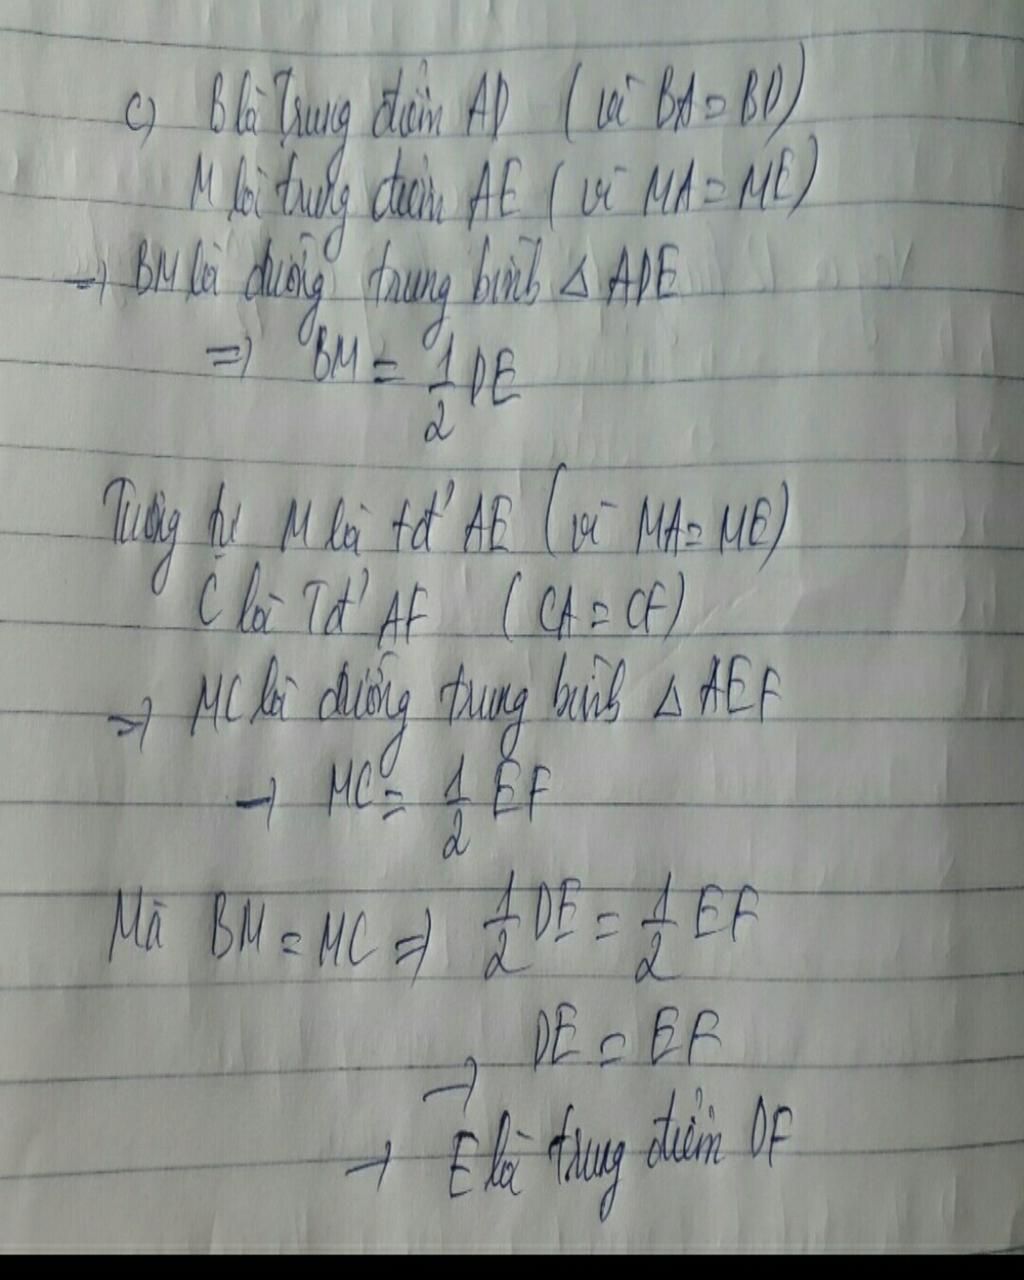 c) B là Trung điểm AD (vì BA = BD)
M là trung điểm AE (vì MA = ME)
→ BM là đường trung bình △ ADE
=> BM = 1/2 DE
Tương tự M là tđ' AE (vì MA = ME)
C là Tđ' AF (CA = CF)
=> MC là đường trung bình △ AEF
→ MC = 1/2 EF
Mà BM = MC => 1/2 DE = 1/2 EF
→ DE = EF
→ E là trung điểm DF